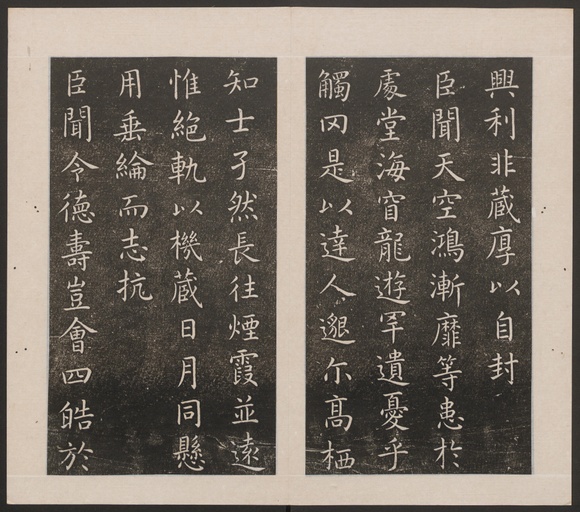 興利非蔵厚以自封
臣聞天空鴻漸靡等患於
處堂海窅龍遊罕遺憂乎
觸罔是以達人邈尓髙栖
知士孑然長往煙霞並遠
惟絶軌以機蔵日月同懸
用垂綸而志抗
臣聞令徳壽豈會四皓於